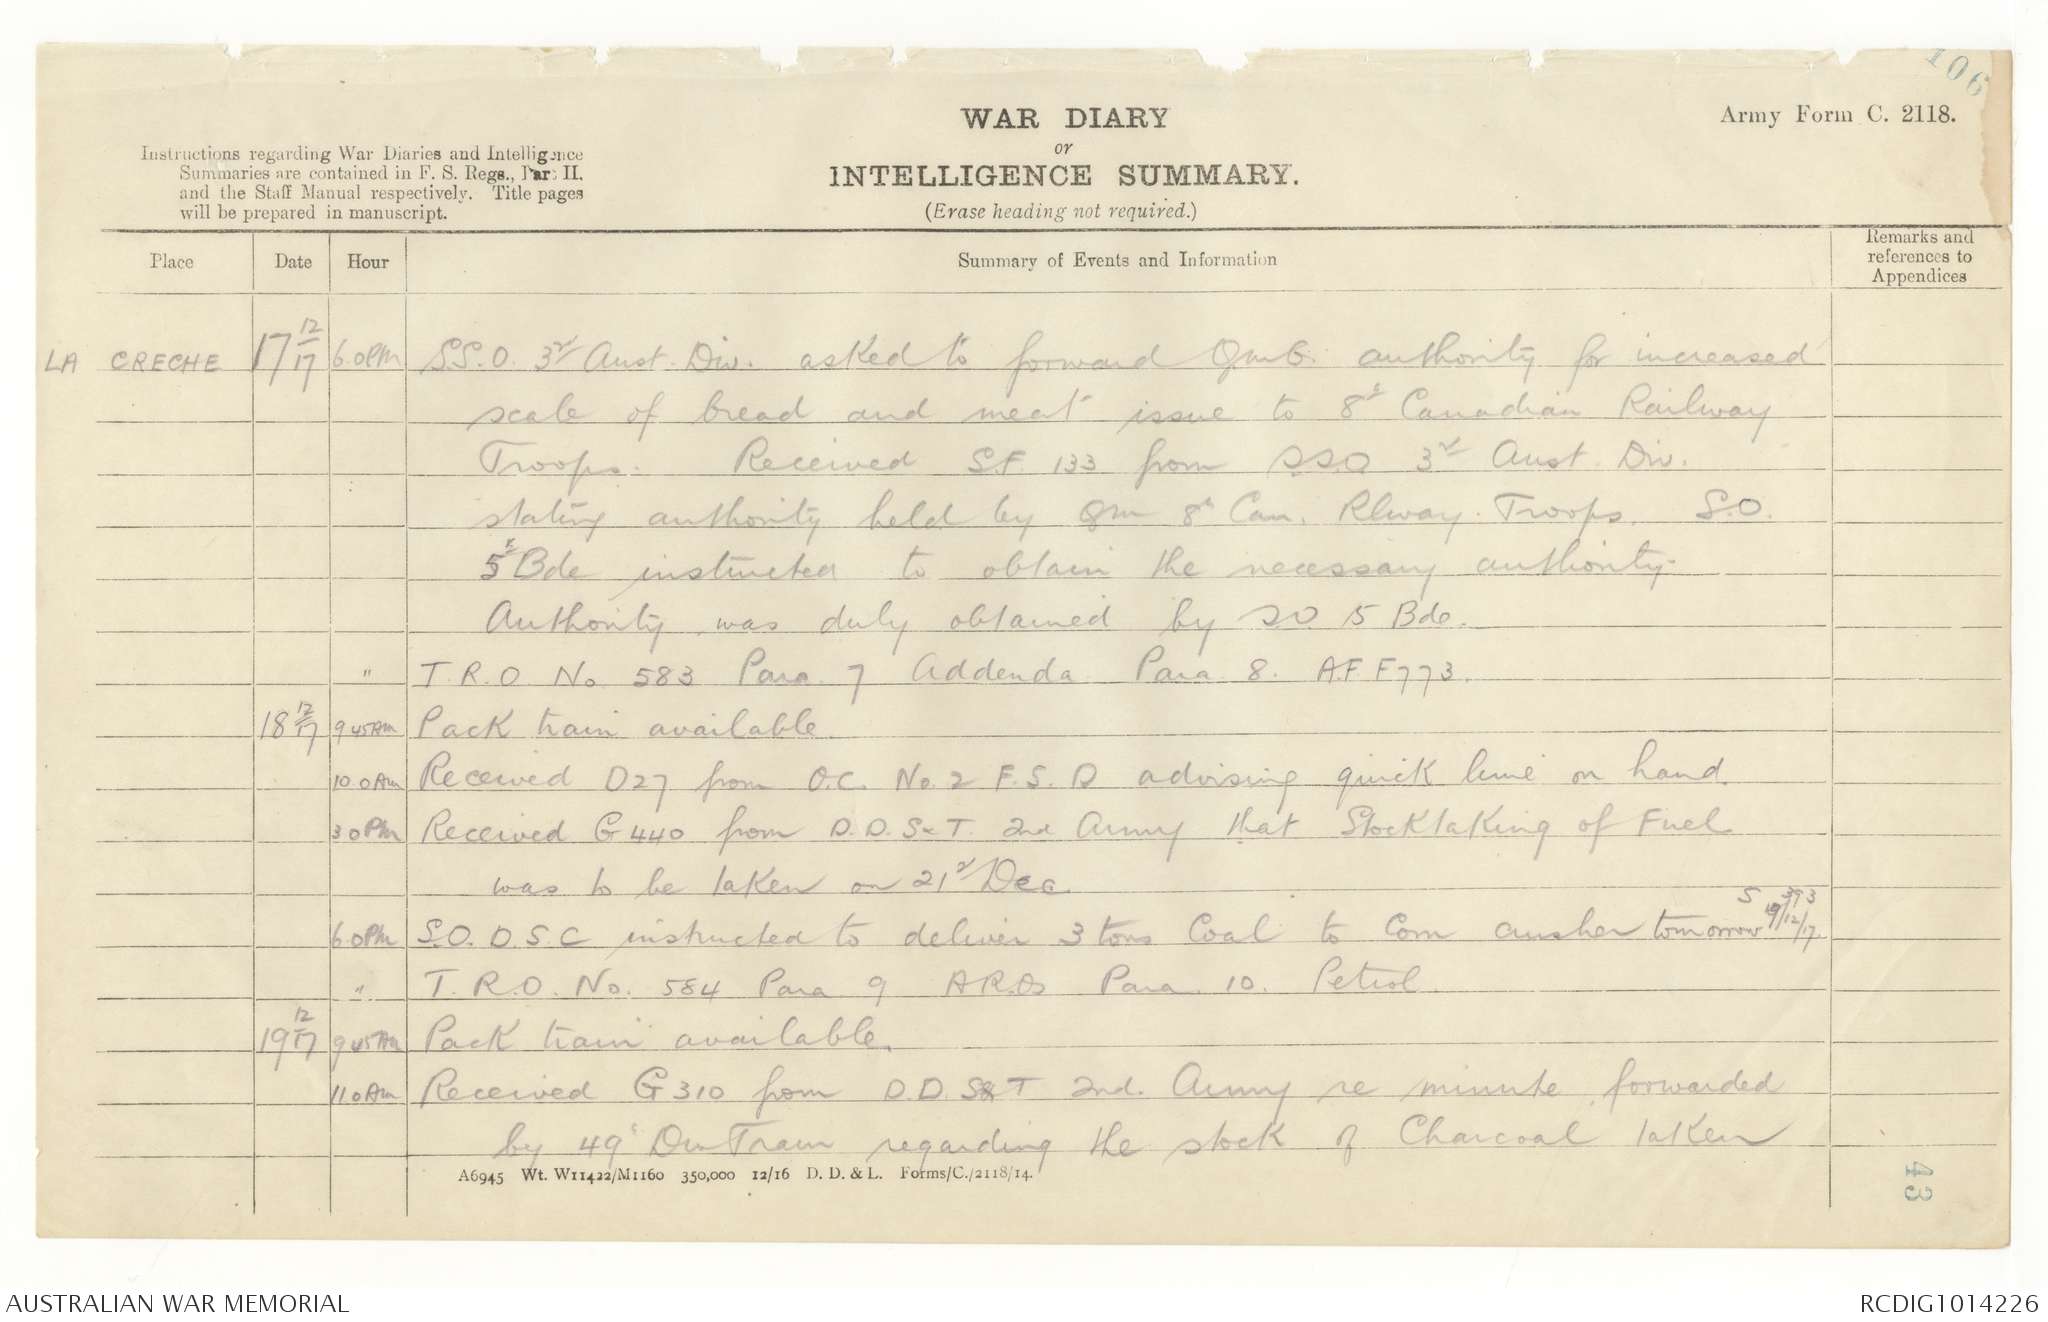 106
Army Form C. 2118.
WAR DIARY
or
INTELLIGENCE SUMMARY.
(Erase heading not required.)
Instructions regarding War Diaries and Intelligence
Summaries are contained in F. S. Regs., Part II.
and the Staff Manual respectively. Title pages
will be prepared in manuscript.
Place Date Hour Summary of Events and Information Remarks and references to Appendices
LA CRECHE 17 12/17 6.0PM S.S.O. 3rd Aust. Div. asked to forward QMG. authority for increased
scale of bread and meat issue to 8th Canadian Railway
Troops. Received S.F. 133 from SSO 3rd Aust. Div.
stating authority held by QM 8th Can. Rlway. Troops. S.O.
5th Bde instructed to obtain the necessary authority.
Authority was duly obtained by SO 5 Bde.
" T.R.O. No 583 Para 7 Addenda Para 8. A.F. F773.
18 12/17 9 45AM Pack train available.
10.0AM Received D27 from O.C. No. 2 F.S.D advising quick lime on hand.
3 0PM Received G440 from D.D.S&T. 2nd Army that Stocktaking of Fuel
was to be taken on 21st Dec.
6.0PM S.O. D.S.C instructed to deliver 3 tons Coal to Corn crusher tomorrow S 393 19/12/17.
" T.R.O. No. 584 Para 9 A.R.Os Para 10. Petrol.
19 12/17 9 45AM Pack train available.
11 0AM Received G310 from D.D.S&T 2nd. Army re minute forwarded
by 49th Div Train regarding the stock of Charcoal taken
A6945 Wt. W11422/M1160 350,000 12/16 D. D. & L. Forms/C./2118/14.
43
AUSTRALIAN WAR MEMORIAL
RCDIG1014226